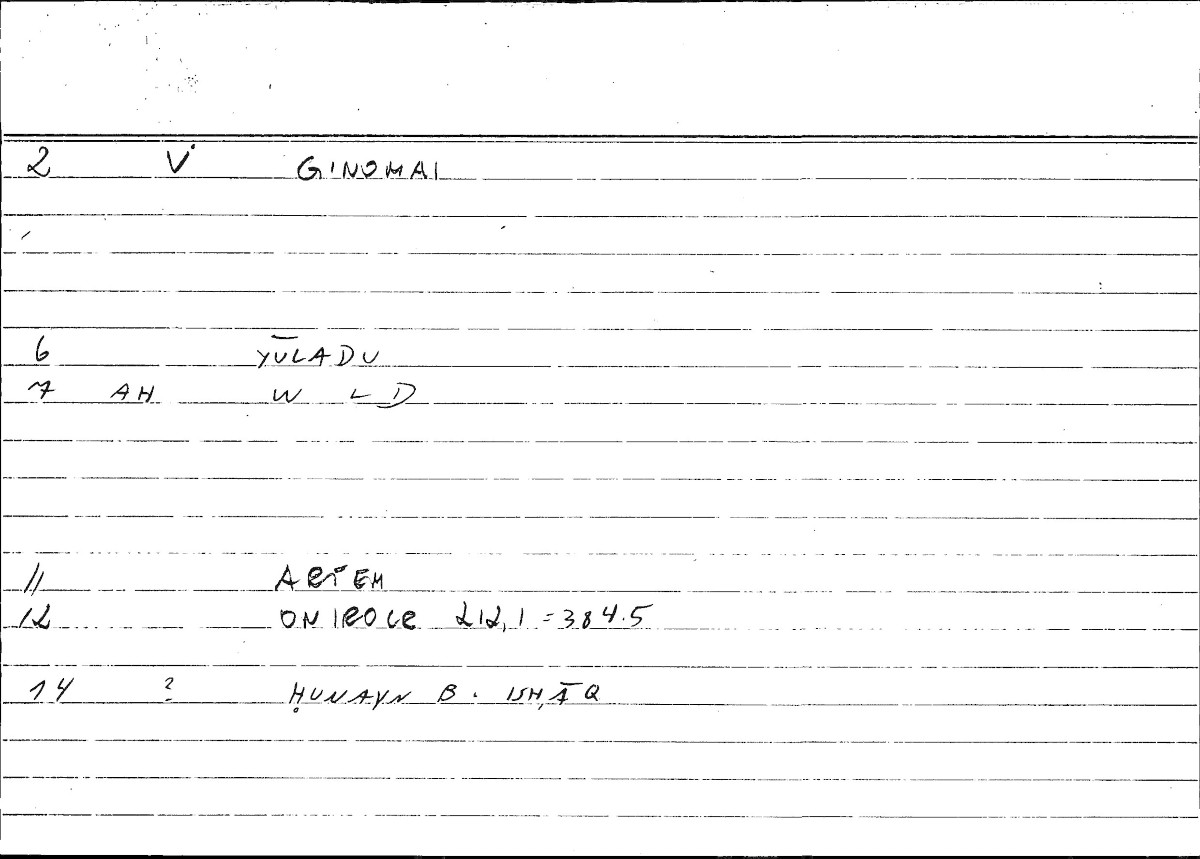 2 V. GINOMAI
6 YŪLADU
7 AH W L D
11 ARTEM
12 ONIROCR 212,1 = 384.5
14 ? ḤUNAYN B. ISḤĀQ